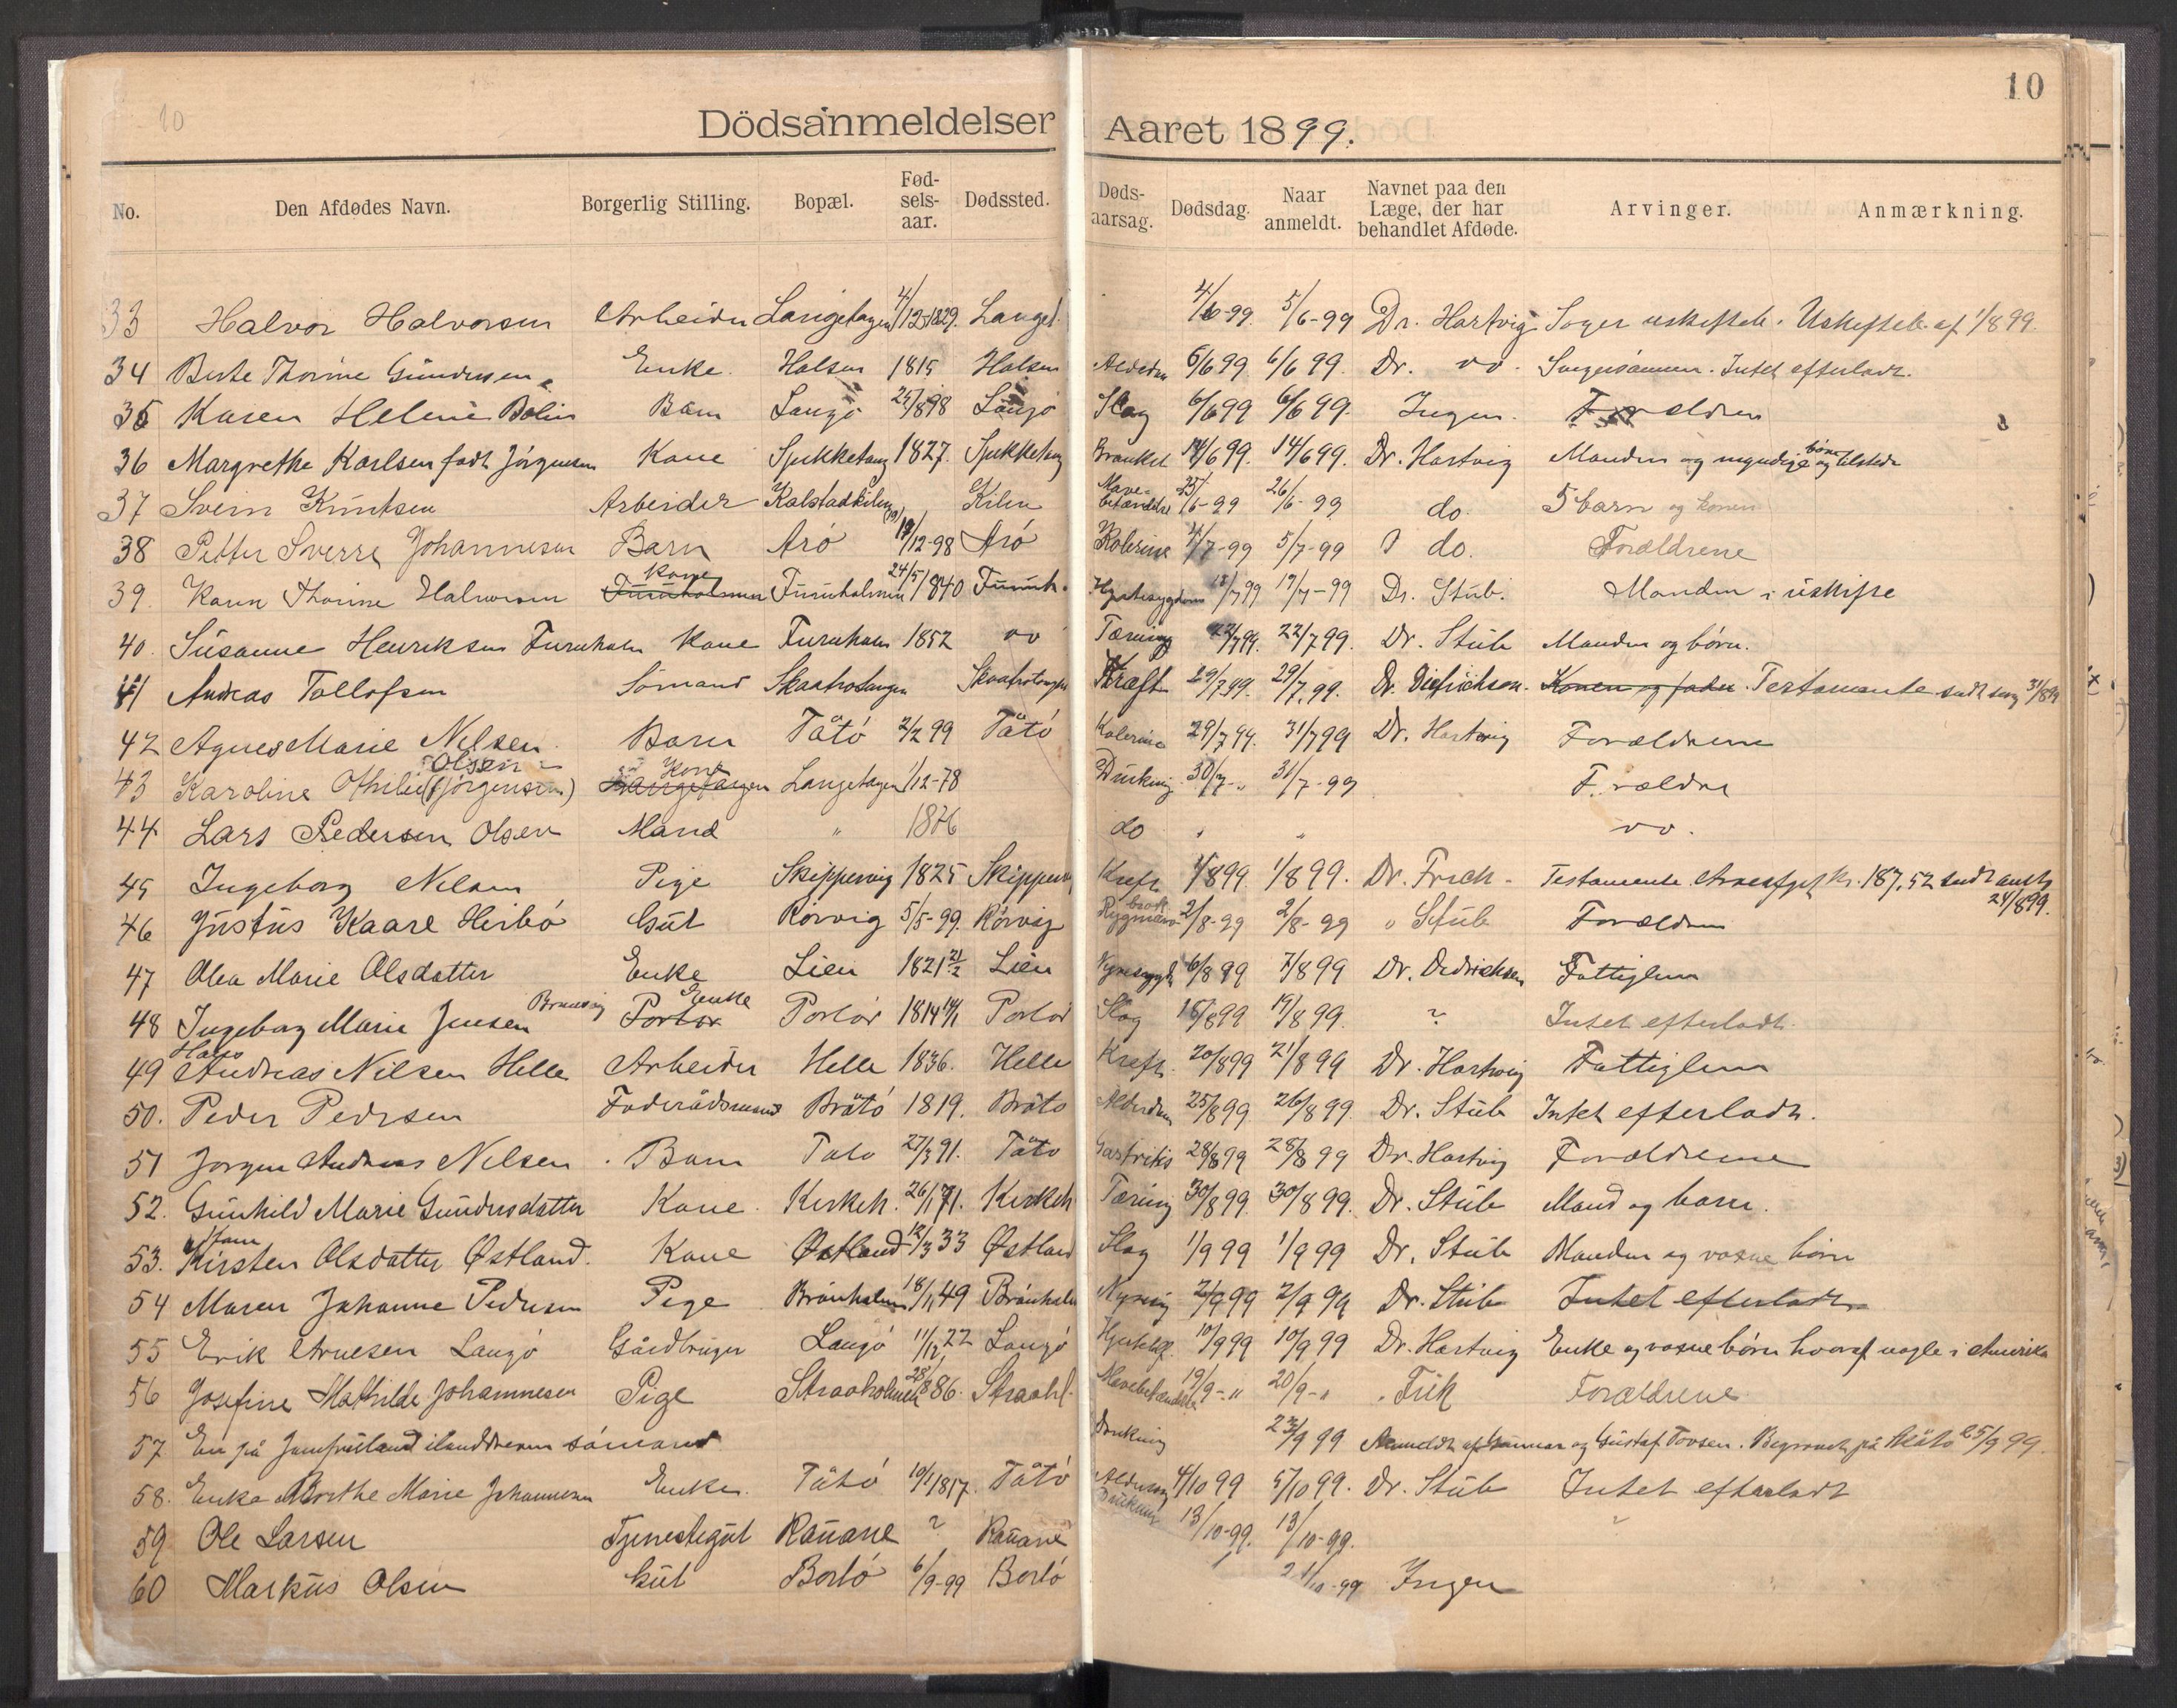 10
10
Dödsanmeldelser Aaret 1899.
No. Den Afdødes Navn. Borgerlig Stilling. Bopæl. Fødselsaar. Dødssted. Dødsaarsag. Dødsdag. Naar anmeldt. Navnet paa den Læge, der har behandlet Afdøde. Arvinger. Anmærkning.
33 Halvor Halvorsen Arbeider Langetangen 4/12 1829. Langet. 4/6-99 5/6-99 Dr. Hartvig Søger uskiftet. Uskiftet af 1/8 99.
34 Berte Thorine Gundersen Enke. Halsen 1815 Halsen 6/6 99 6/6 99. Dr. do. Svigersønnen. Intet efterladt.
35 Karen Helene Bolin Barn Langö 25/8 98 Langö Slag 6/6 99 6/6 99. Ingen. Forældren
36 Margrethe Karlsen født Jörgensen Kone 1827. 14/6 99. 14/6 99. Dr. Hartvig Manden og myndige børn
37 Svein Knutsen Arbeider Kalstadkilen Kilen Mavebetændelse 25/6-99 26/6-99 do. 5 barn og konen
38 Petter Sverre Johannesen Barn Arö 19/12-98 Arö Kolerine 4/7-99 5/7-99 do. Forældrene
39. Karen Thorine Halvorsen Furuholmen Kone Furuholmen 24/5 1840 Furuh. Hjertesygdom 18/7 99 19/7-99 Dr. Stub. Manden i uskifte
40. Susanne Henriksen Furuholm Kone Furuholm 1852 do Tæring 22/7 99. 22/7 99. Dr. Stub Manden og børn.
41 Andreas Tollofsen Sömand Kræft 29/7 99. 29/7.99. Dr. Diedrichson. Konen og fader. Testamente 31/8 99
42 Agnes Marie Nilsen Barn Tåtö 2/2 99 Tåtö Kolerine 29/7 99. 31/7 99 Dr. Hartvig Forældrene
43 Karoline Othilie (Jörgensen) Olsen Langetangen Kone Langetangen 1/12-78 Drukning 30/7-" 31/7-99 Forældre
44 Lars Pedersen Olsen Mand " 1876 do " " do.
45 Ingeborg Nilsen Pige Skippervig 1825 Skipperv. Kreft 1/8 99 1/8 99. Dr. Frich Testamente. Arveafgift kr. 187,52 sendt
24/8 99.
46 Justus Kaare Heibö Gut Rörvig 5/5-99. Rörvig Rygmarvsbrok 2/8-99 2/8-99 " Stub Forældren
47 Olea Marie Olsdatter Enke Lien 1821 21/2 Lien Nyresygd. 6/8 99 7/8 99 Dr. Dedrichsen Fattiglem
48 Ingeborg Marie Jensen Portör Enke Portör 1814 Portör Slag 18/8 99 19/8 99. ? Intet efterladt.
49 Hans Andreas Nilsen Helle Arbeider Helle 1836. Helle Kreft. 20/8 99 21/8 99 Dr. Hartvig Fattiglem
50. Peder Pedersen Föderådsmand Bråtö 1819. Bråtö Alderdom 25/8 99 26/8 99. Dr. Stub Intet efterladt.
51 Jørgen Andreas Nilsen Barn Tåtö 27/3 91. Tåtö Gastritis 28/8 99 28/8 99 Dr. Hartvig Forældrene
52. Gunhild Marie Gundersdatter Kone Kirkeh. 26/1 71. Kirkeh Tæring 30/8 99. 30/8 99. Dr. Stub Mand og barn.
53. Kirsten Olsdatter Østland. Kone Østland 12/3 33 Østland Slag 1/9 99 1/9 99 Dr. Stub Manden og voxne børn
54 Maren Johanne Pedersen Pige Brönholmen 18/11 49 Brönholm 2/9 99 2/9 99 Dr. Stub Intet efterladt
55 Erik Arnesen Langö Gårdbruger Langö 11/12 22 Langö 10/9 99 10/9 99 Dr. Hartvig Enke og voxne børn hvoraf nogle i Amerika
56 Josefine Mathilde Johannesen Pige Straaholmen 28/8 86. Straahl. Mavebetændelse 19/9-" 20/9-" Frik Forældrene
57 En på Jomfruland ilanddreven sömand Drukning 23/9 99 Anmeldt af Gunnar og Gustaf Tovsen. Begravet på Skåtö 25/9 99.
58. Enke Marthe Marie Johannesen Enke. Tåtö 10/1 1817. Tåtö 4/10 99 5/10 99. Dr. Stub Intet efterladt
59 Ole Larsen Tjenestegut Rauane ? Rauane Drukning 13/10-99. 13/10-99.
60 Markus Olsen Gut Bortö 6/9-99 Bortö 21/10-99 Ingen